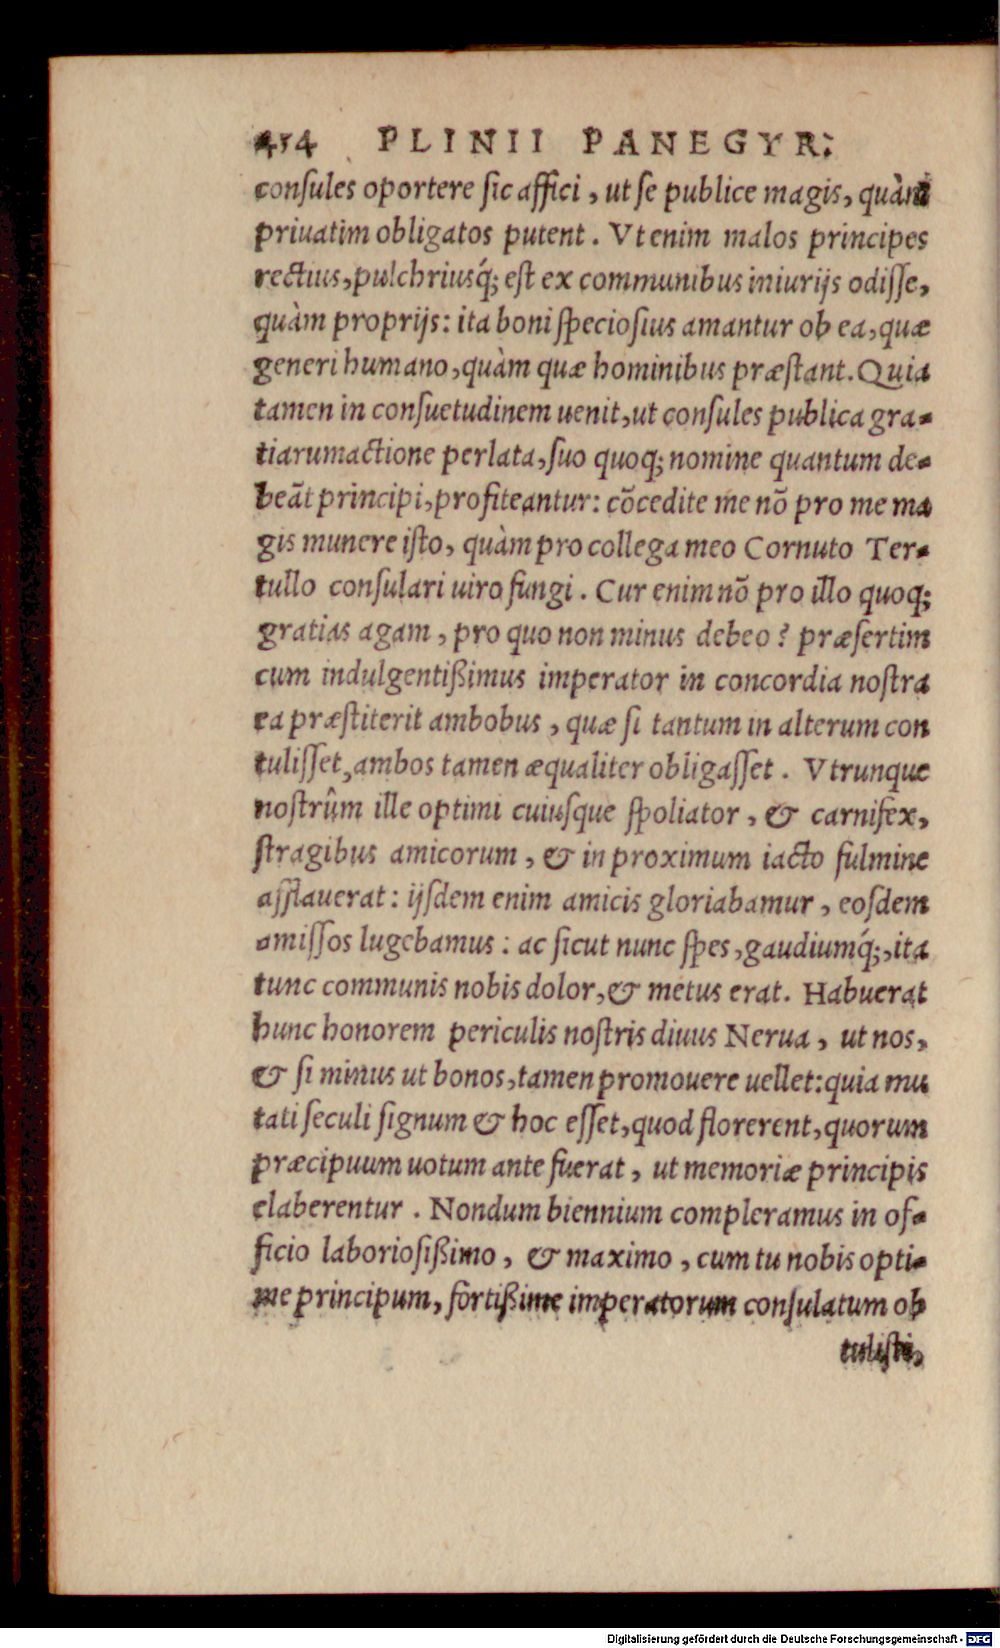 454 PLINII PANEGYR:
consules oportere sic affici, ut se publice magis, quàm
priuatim obligatos putent. Vt enim malos principes
rectius, pulchriusq́; est ex communibus iniurijs odisse,
quàm proprijs: ita boni speciosius amantur ob ea, quæ
generi humano, quàm quæ hominibus præstant. Quia
tamen in consuetudinem uenit, ut consules publica gra-
tiarumactione perlata, suo quoq; nomine quantum de-
beāt principi, profiteantur: cōcedite me nō pro me ma
gis munere isto, quàm pro collega meo Cornuto Ter-
tullo consulari uiro fungi. Cur enim nō pro illo quoq;
gratias agam, pro quo non minus debeo? præsertim
cum indulgentißimus imperator in concordia nostra
ea præstiterit ambobus, quæ si tantum in alterum con
tulisset, ambos tamen æqualiter obligasset. Vtrunque
nostrûm ille optimi cuiusque spoliator, & carnifex,
stragibus amicorum, & in proximum iacto fulmine
afflauerat: ijsdem enim amicis gloriabamur, eosdem
amissos lugebamus: ac sicut nunc spes, gaudiumq́;, ita
tunc communis nobis dolor, & metus erat. Habuerat
hunc honorem periculis nostris diuus Nerua, ut nos,
& si minus ut bonos, tamen promouere uellet: quia mu
tati seculi signum & hoc esset, quod florerent, quorum
præcipuum uotum ante fuerat, ut memoriæ principis
elaberentur. Nondum biennium compleramus in of-
ficio laboriosißimo, & maximo, cum tu nobis opti-
me principum, fortißime imperatorum consulatum ob
tulisti,
Digitalisierung gefördert durch die Deutsche Forschungsgemeinschaft - DFG